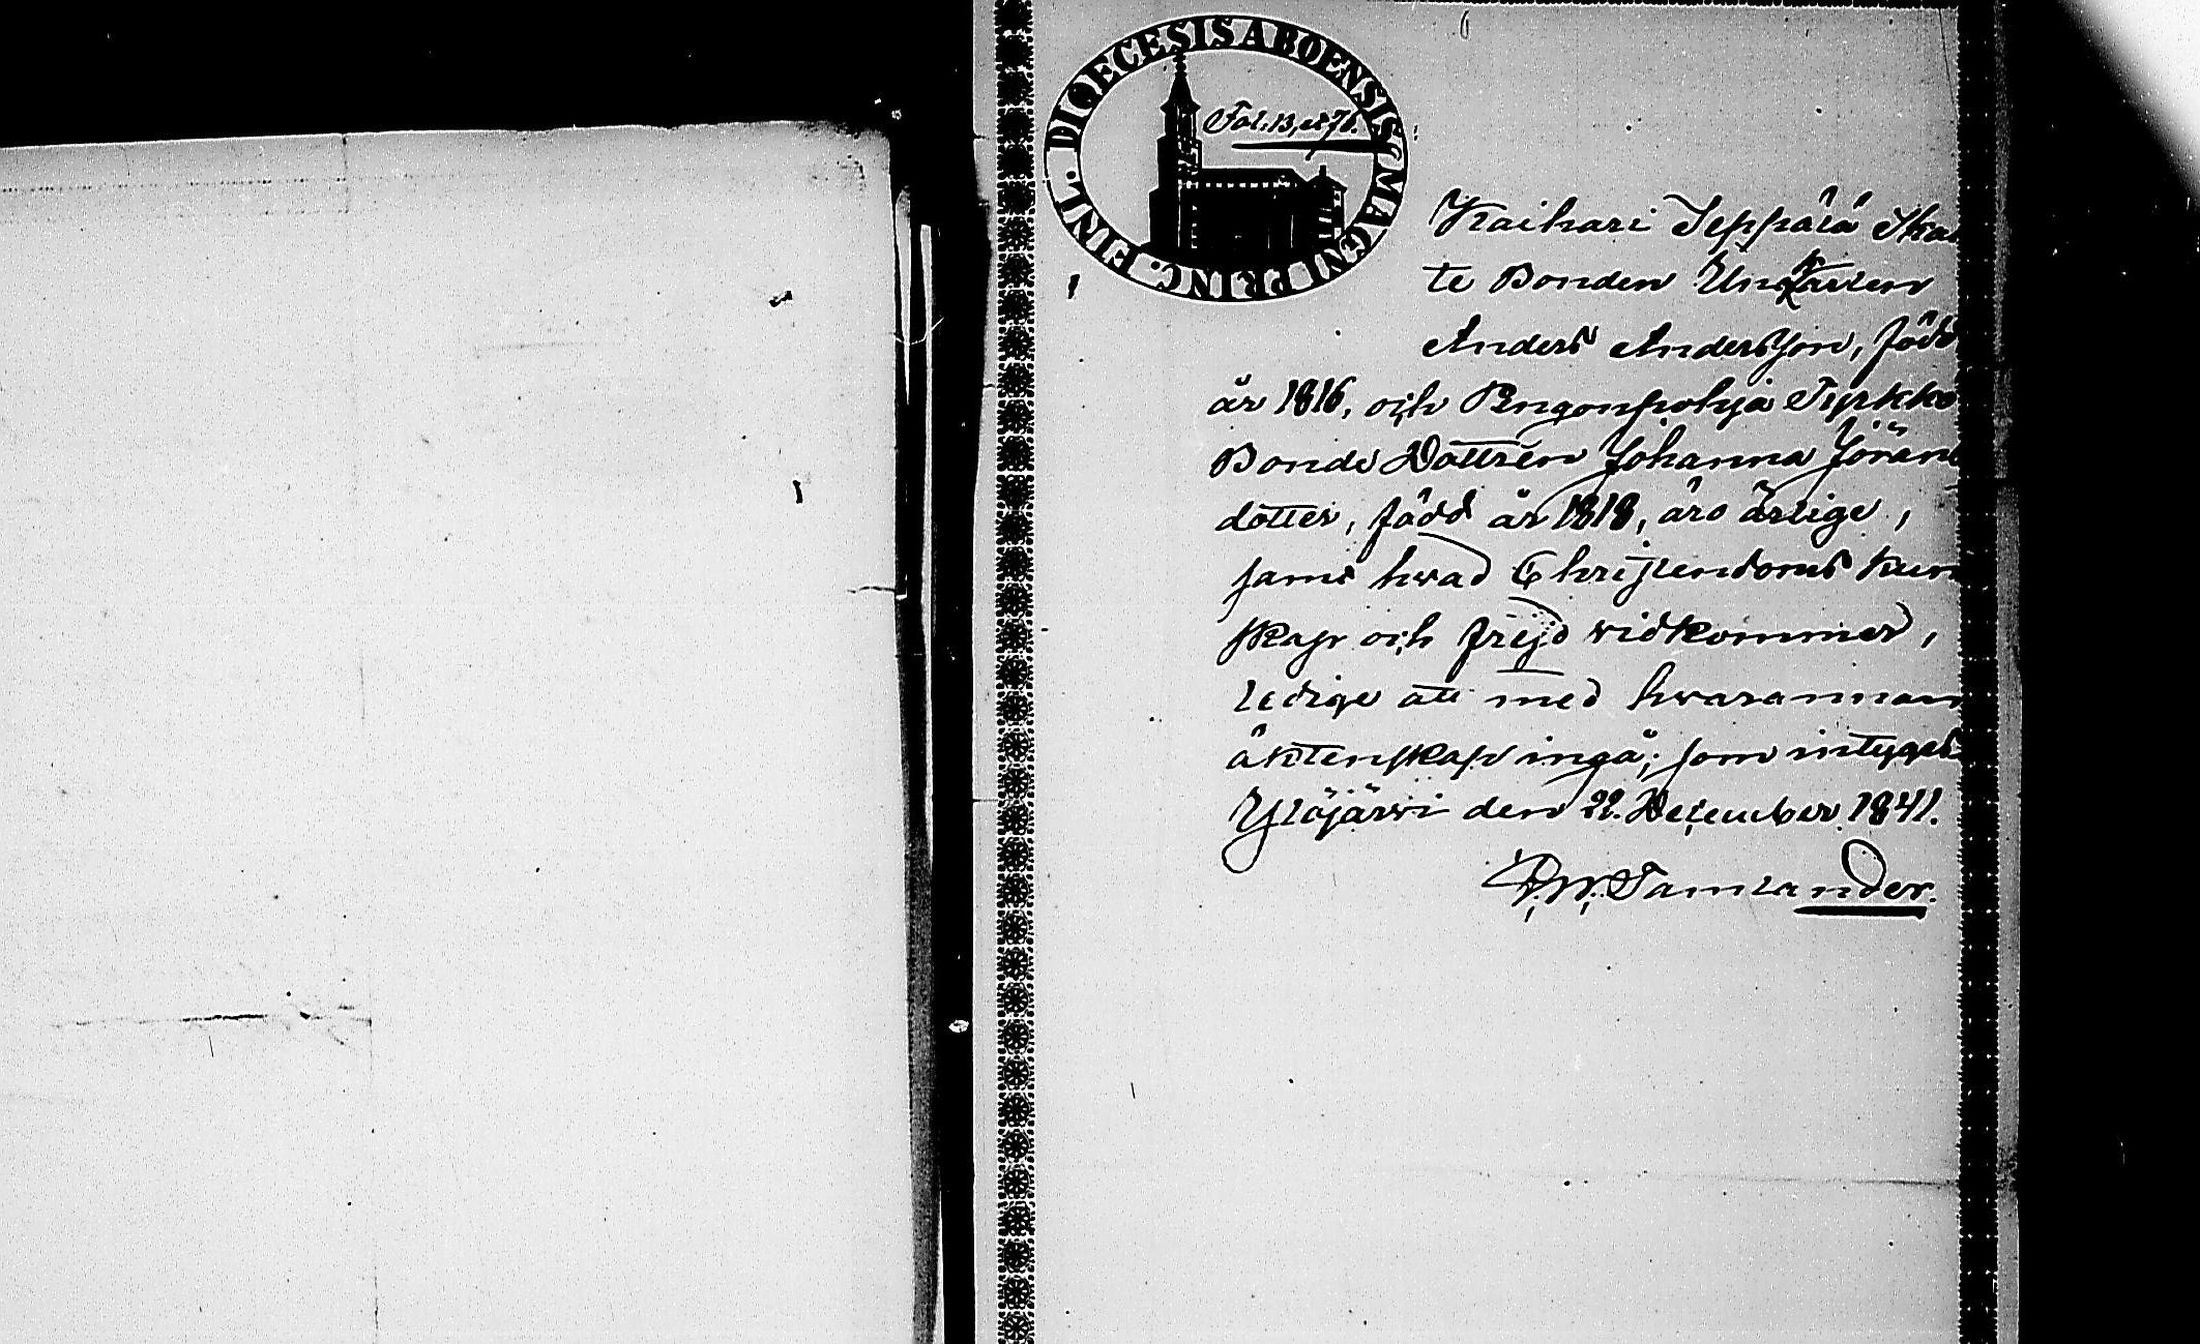 DIOECESIS ABOENSIS MAGNI PRINC. FINL.
Fol: 13, et 76.
Kaihari Seppälä Skat
te Bonden Ungkarlen
Anders Andersson, född
år 1816, och Pengonpohja Tyrkkö
Bonde Dottren Johanna Jörans
dotter, född år 1818, äro ärlige,
samt hvad Christendoms kun
skap och frejd vidkommer,
ledige att med hvarannan
äktenskap ingå; som intygas
Ylöjärvi den 22. December 1841.
Tamlander.